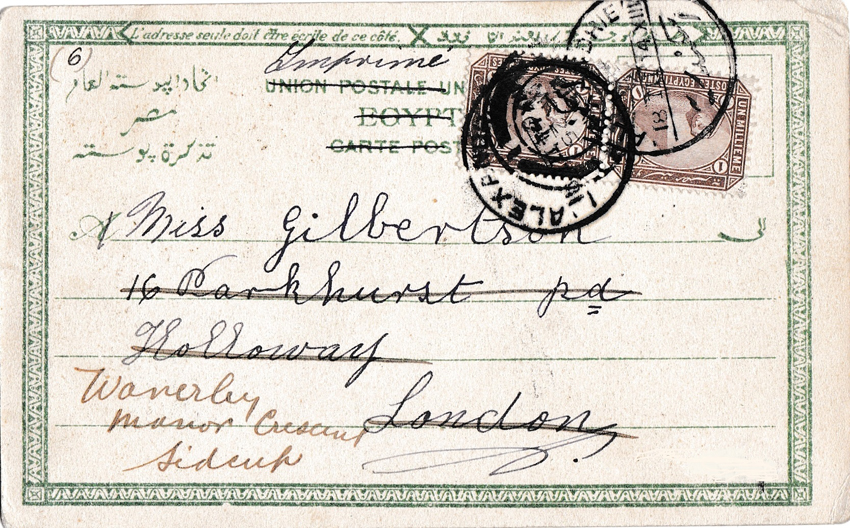 L'adresse seule doit être écrite de ce côté.
(6)
Imprimé
اتحاد البوستة العام
UNION POSTALE UN
مصر
EGYPT
تذكرة بوستة
CARTE POST
UN MILLIEME
1 1
ALEXAN
A Miss Gilbertson
الى
16 Parkhurst Rd
Holloway
London
Waverley
Manor Crescent
Sidcup